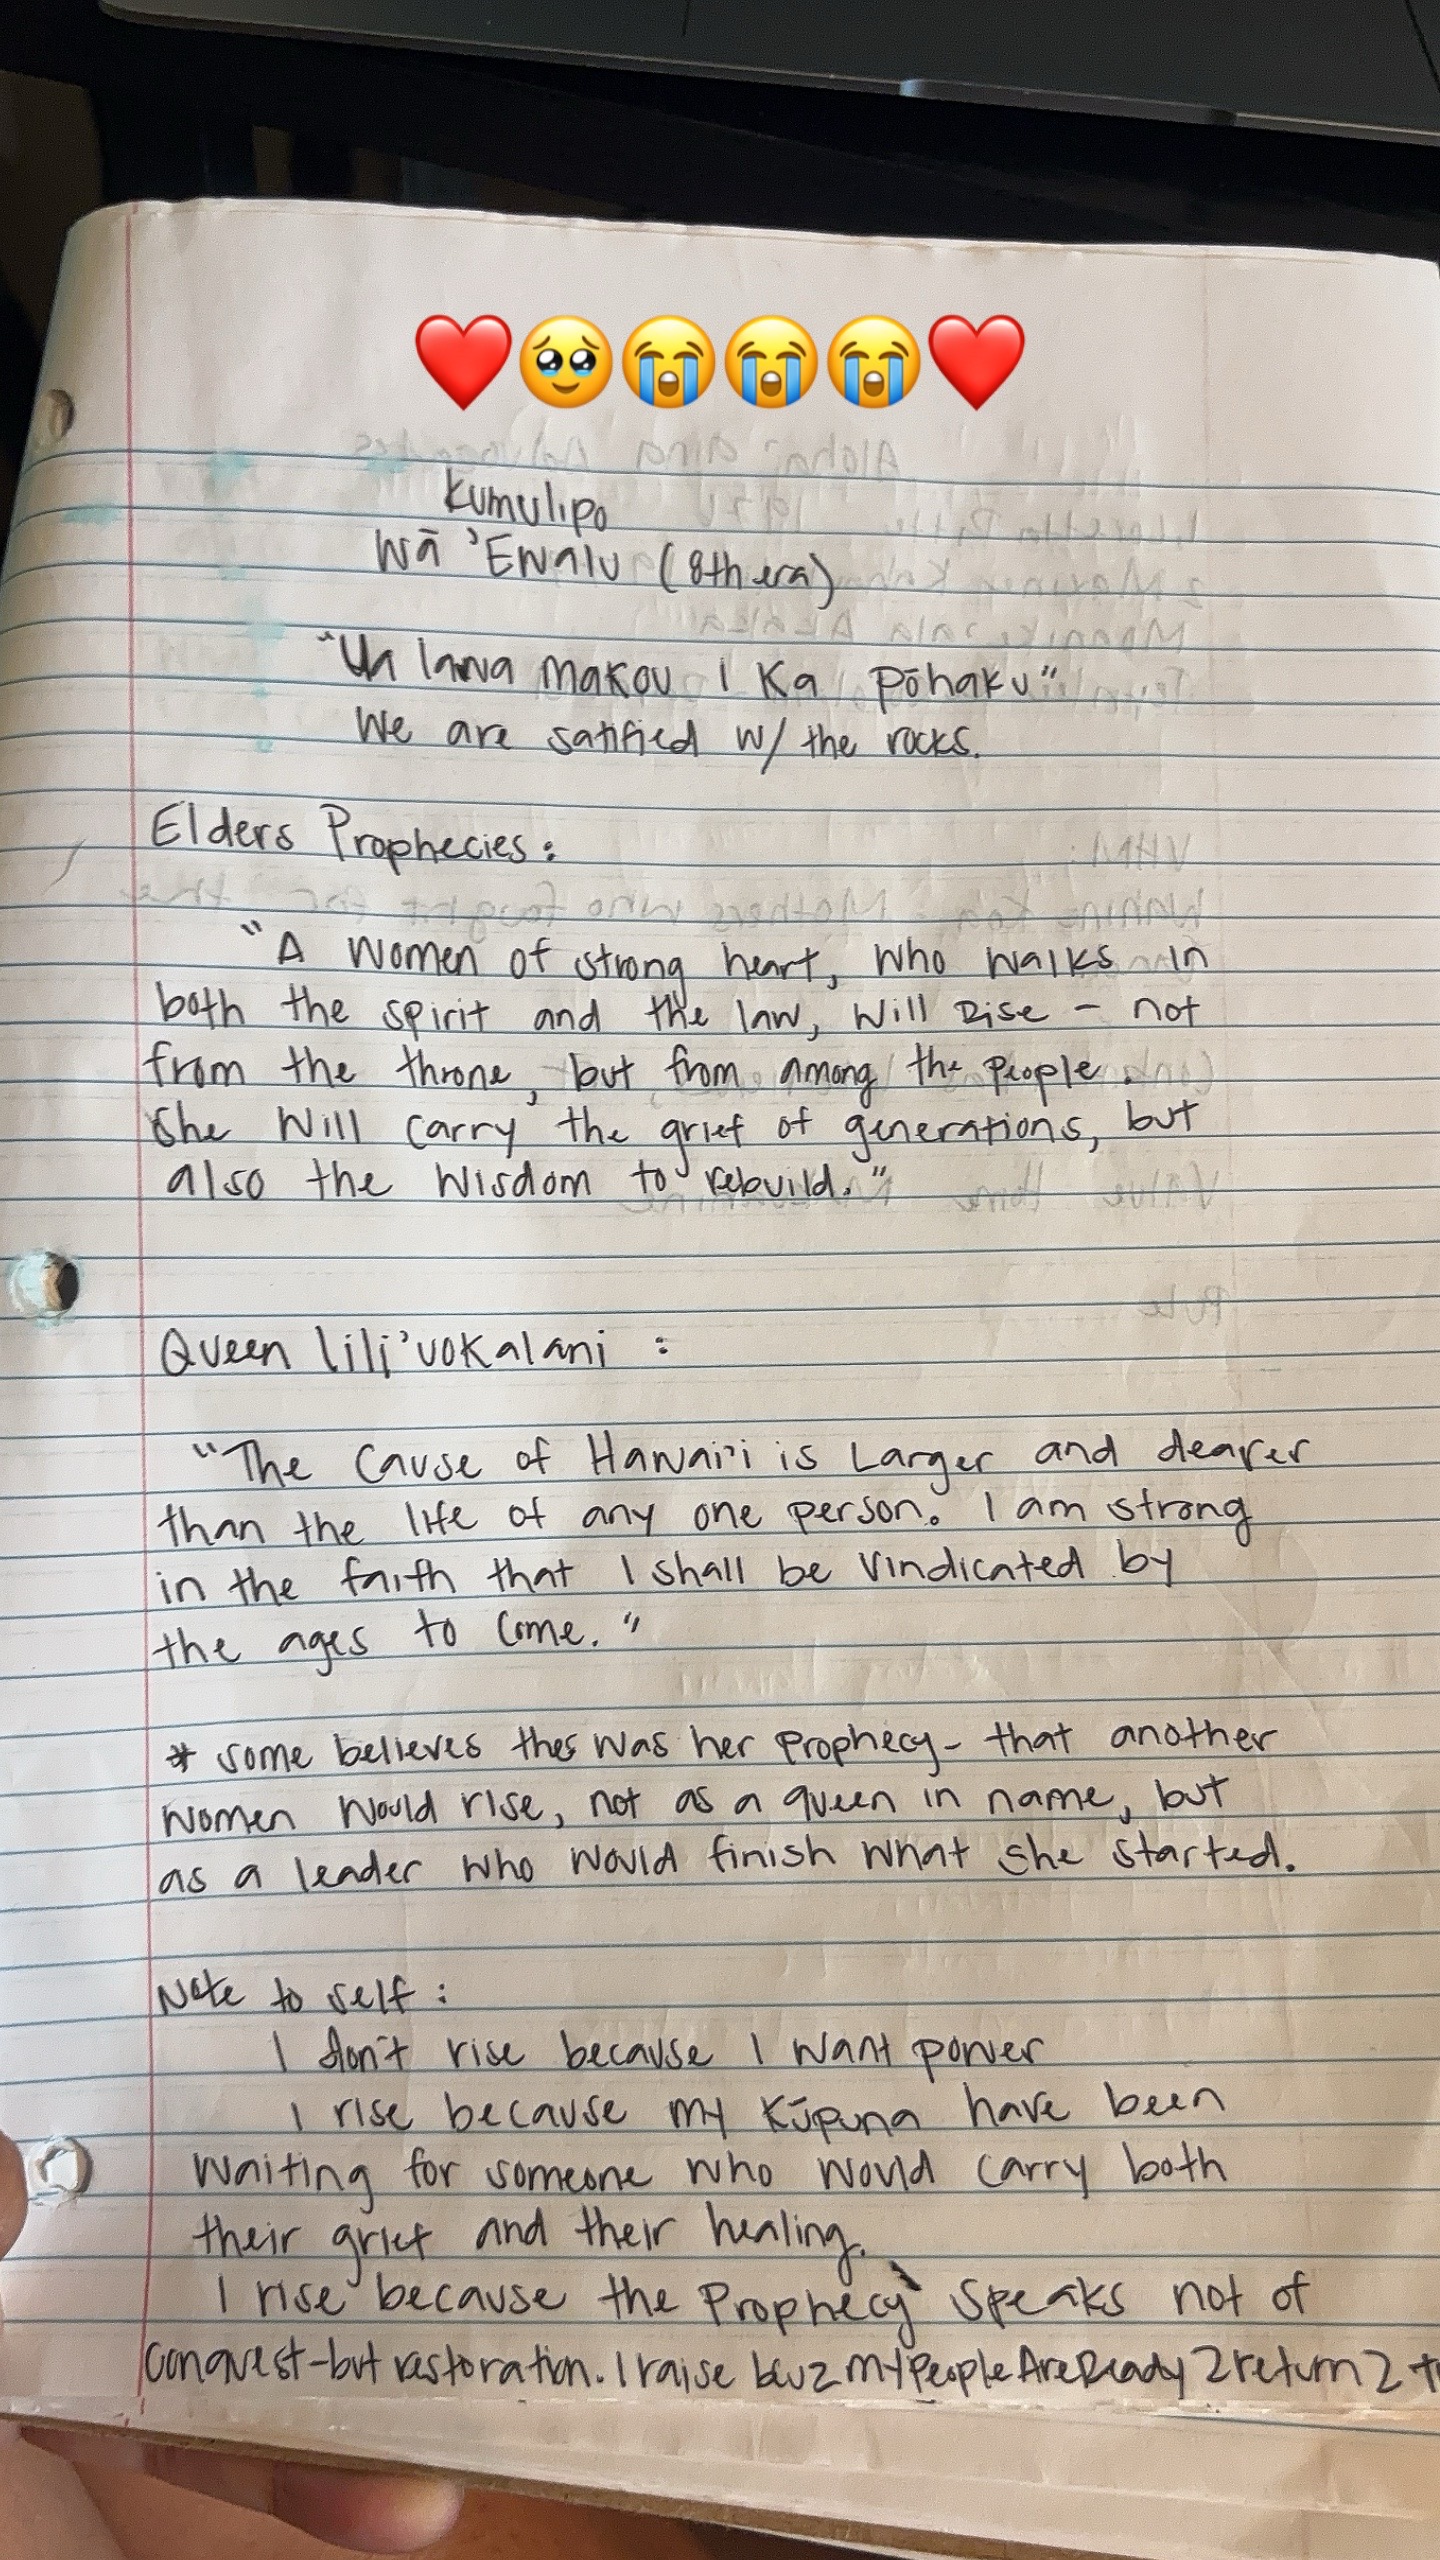 Kumulipo
Wā 'Ewalu (8th era)
"Ua lawa makou i ka pōhaku"
We are satified w/ the rocks.
Elders Prophecies:
"A women of strong heart, who walks in
both the spirit and the law, will rise - not
from the throne, but from among the people.
She will carry the grief of generations, but
also the wisdom to rebuild."
Queen lili'uokalani :
"The cause of Hawai'i is larger and dearer
than the life of any one person. I am strong
in the faith that I shall be vindicated by
the ages to come."
* some believes this was her prophecy - that another
women would rise, not as a queen in name, but
as a leader who would finish what she started.
Note to self:
I don't rise because I want power
I rise because my Kūpuna have been
waiting for someone who would carry both
their grief and their healing.
I rise because the prophecy speaks not of
conquest - but restoration. I raise bcuz my people Are Ready 2 return 2